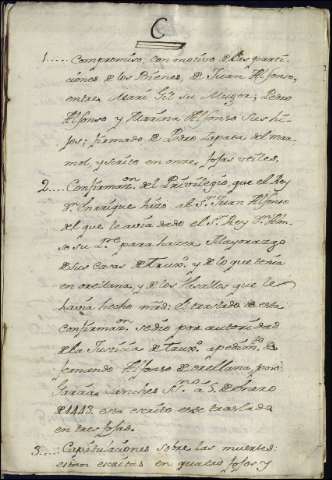 C
1.... Compromiso, con motivo de las parti-
ciones de los Bienes, de Juan Alfonso,
entre Mari Gil su Muger, Pedro
Alfonso y Marina Alfonso sus hi-
jos; firmado de Pedro Zapata del mar-
mol, y escrito en onze fojas utiles.
2.... Confirmaz.on del Privilegio, que el Rey
D.n Enrrique hizo al S.r Juan Alfonso
del que le avia dado el S.r Rey D.n Alon-
so su P.re para hazer Mayorazgo
de sus casas de Trux.o y de lo que tenia
en orellana, y de los Vasallos que le
havia hecho mrd: el traslado de esta
confirmaz.on se dio por autoridad
de la Justicia de Trux.o a pedim.to de
fernando Alfonso de orellana, por
Garcia Sanches SS.no a 5. de
de 1443. esta escrito este traslado
en tres fojas.
3.... Capitulaciones sobre las muertes:
estan escritas en quatro fojas y